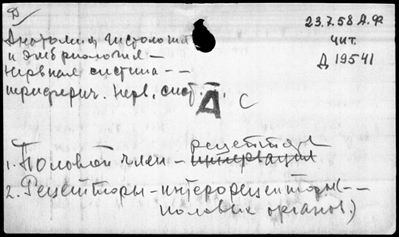 Д
23.7.58 А.Ф
Анатомия гистология
чит.
и эмбриология —
Д 19541
нервная система - -
периферич. нерв. сист. -.
А С
рецептор
1. Половой член - иннервация
2. Рецепторы - интерорецепторы - -
половых органов.)